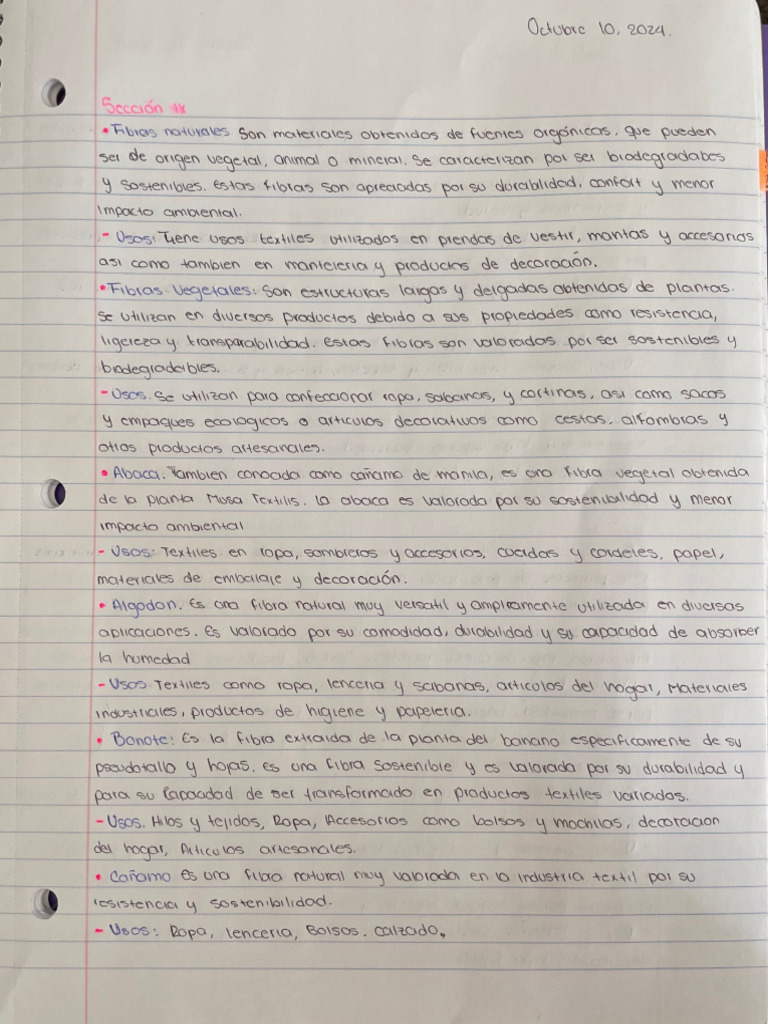 Octubre 10, 2024.
Sección
• Fibras naturales Son materiales obtenidos de fuentes orgánicas, que pueden
ser de origen vegetal, animal o mineral. Se caracterizan por ser biodegradabes
y sostenibles. estas fibras son apreciadas por su durabilidad, confort y menor
impacto ambiental.
- Usos: Tiene usos textiles utilizados en prendas de vestir, mantas y accesorios
asi como tambien en manteleria y productos de decoración.
• Fibras Vegetales: Son estructuras largas y delgadas obtenidas de plantas.
Se utilizan en diversos productos debido a sus propiedades como resistencia,
ligereza y transparabilidad. estas fibras son valorados por ser sostenibles y
biodegradables.
- Usos. Se utilizan para confeccionar ropa, sabanas, y cortinas, asi como sacos
y empaques ecologicos o articulos decorativos como cestas, alfombras y
otros productos artesanales.
• Abaca. Tambien conocida como cañamo de manila, es una fibra vegetal obtenida
de la planta Musa Textilis. la abaca es valorada por su sostenibilidad y menor
impacto ambiental
- Usos: Textiles en ropa, sombreros y accesorios, cuerdas y cordeles, papel,
materiales de embalaje y decoración.
• Algodon. Es una fibra natural muy versatil y ampliamente utilizada en diversas
aplicaciones. Es valorado por su comodidad, durabilidad y su capacidad de absorber
la humedad
- Usos Textiles como ropa, lenceria y sabanas, articulos del hogar, Materiales
industriales, productos de higiene y papeleria.
• Bonote: Es la fibra extraida de la planta del banano especificamente de su
pseudotallo y hojas. es una fibra sostenible y es valorada por su durabilidad y
para su capacidad de ser transformado en productos textiles variados.
- Usos. Hilos y tejidos, Ropa, Accesorios como bolsos y mochilas, decoracion
del hogar, Articulos artesanales.
• Cañamo Es una fibra natural muy valorada en la industria textil por su
resistencia y sostenibilidad.
- Usos: Ropa, lenceria, Bolsos. calzado.